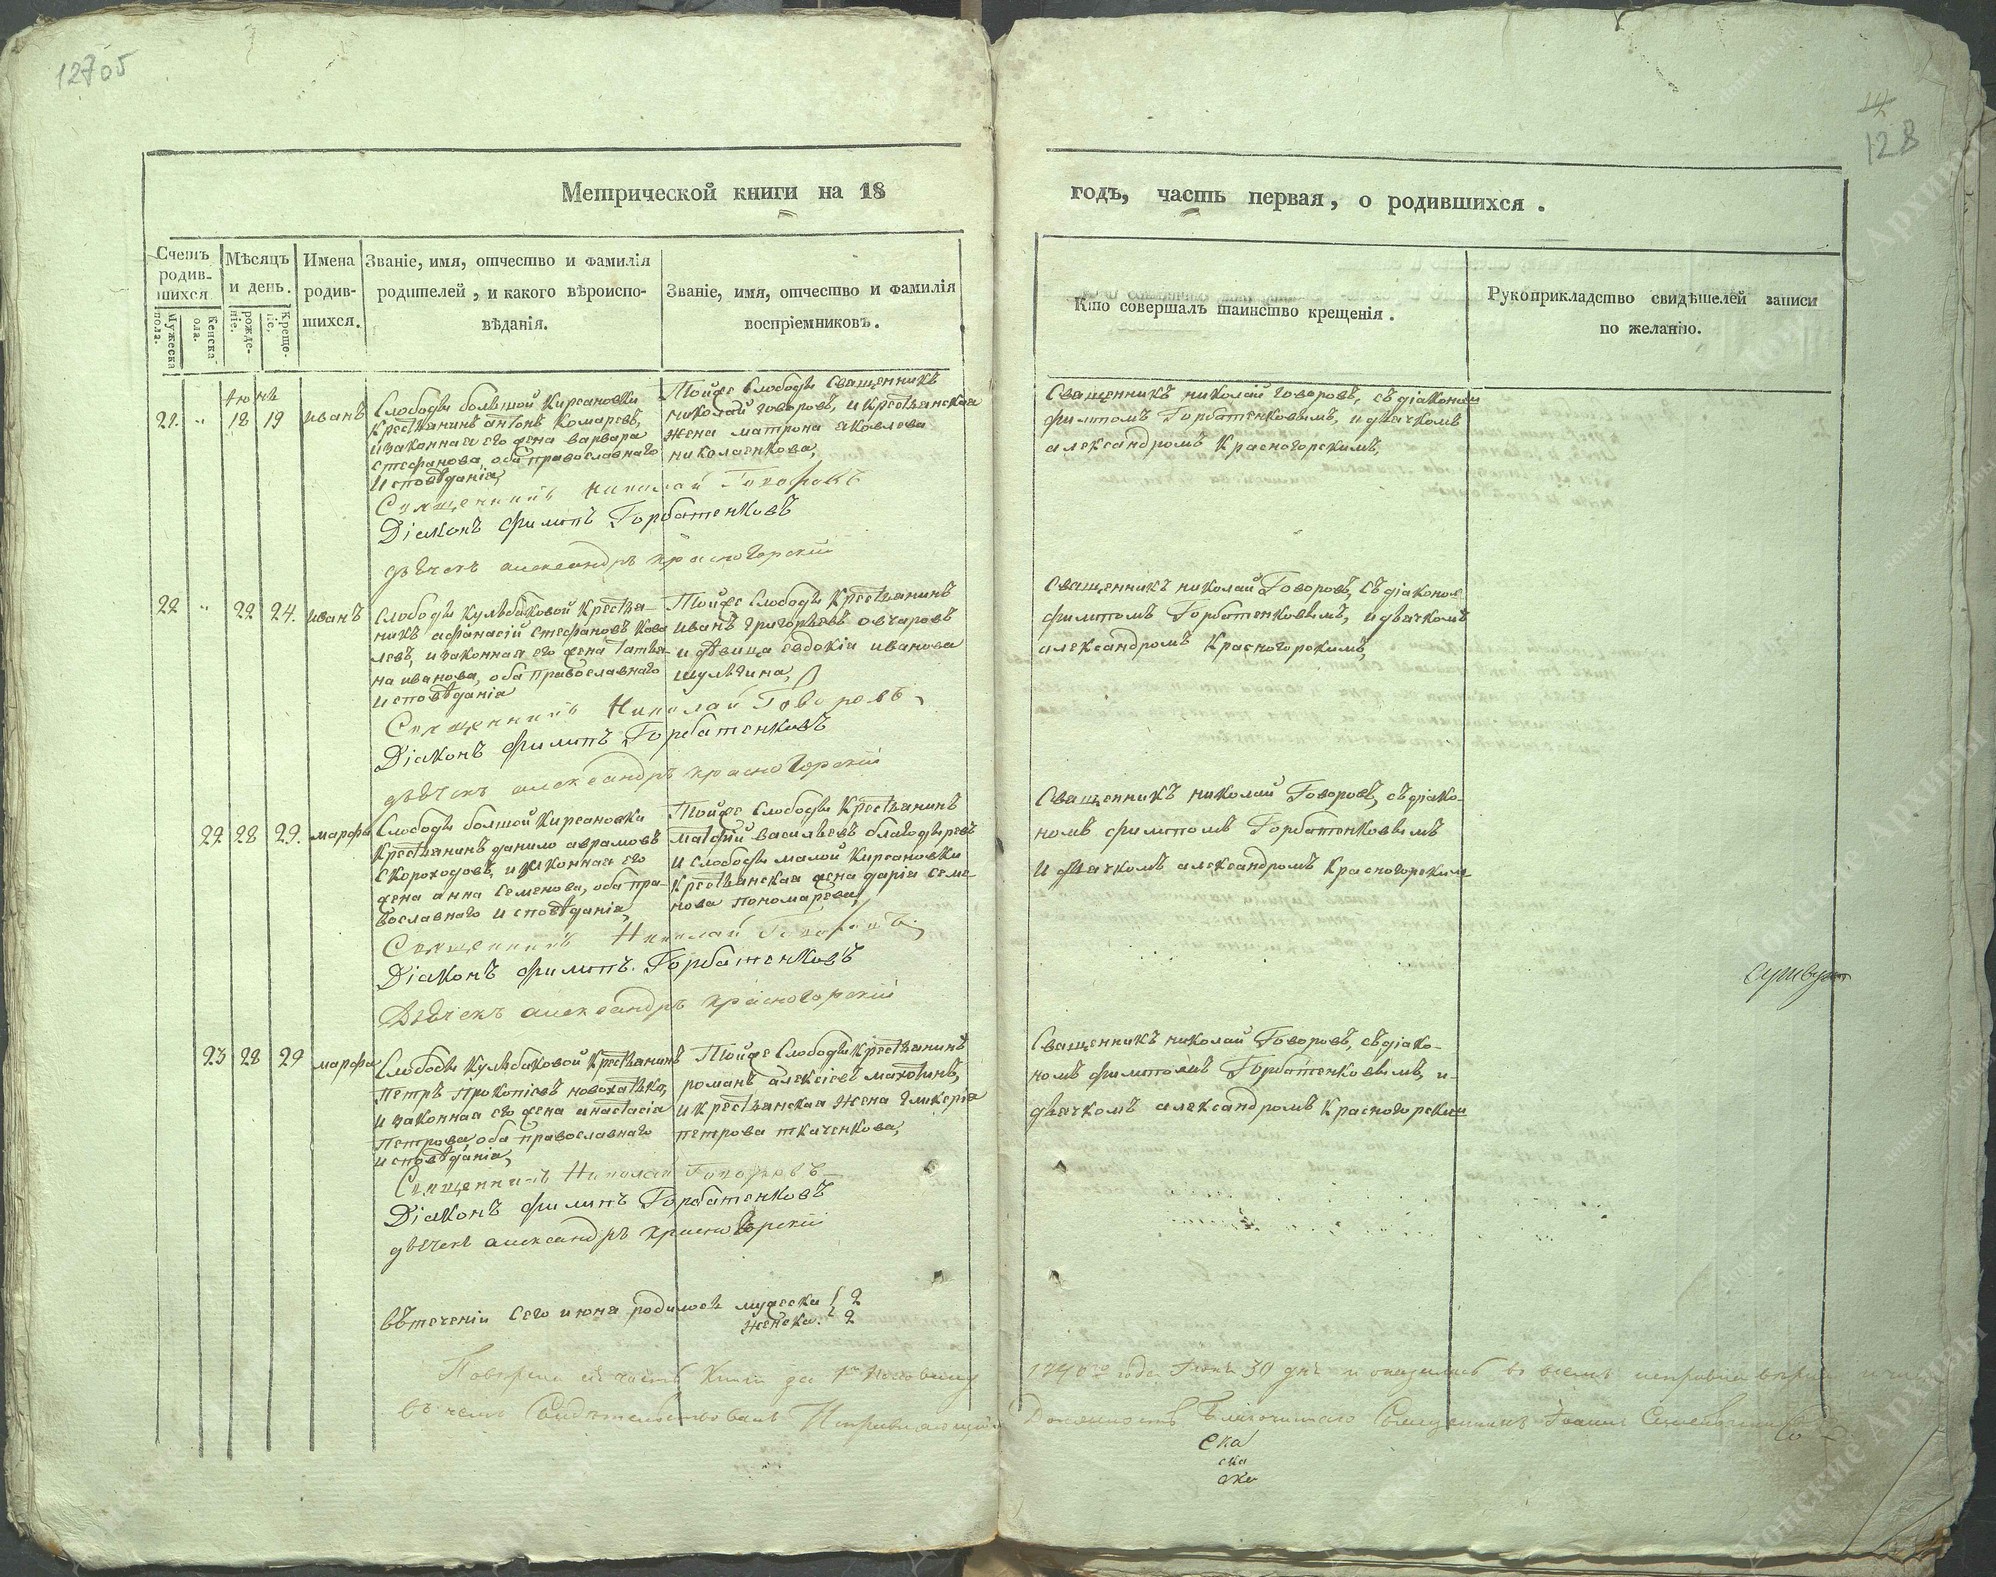 12705
14
128
Метрической книги на 18 годъ, часть первая, о родившихся.
Счетъ родив- шихся
Мѣсяцъ и день.
Имена родив- шихся.
Званіе, имя, отчество и фамилія
родителей, и какого вѣроиспо-
вѣданія.
Званіе, имя, отчество и фамилія
воспріемниковъ.
Кто совершалъ таинство крещенія.
Рукоприкладство свидѣтелей записи
по желанію.
Мужеска пола.
Женска- пола.
рожде- ніе.
Креще- ніе.
Июнь
21. " 18 19 Иванъ
Слободы большой Кирсановки
Крестьянинъ антонъ Комаревъ,
и законная его жена варвара
стефанова, оба православнаго
исповѣданія,
Тойже слободы Священникъ
николай говоровъ, и Крестьянская
жена матрона яковлева
николаенкова,
Священникъ николай Говоровъ, съ діакономъ
филипомъ Горбатенковымъ, и дьячкомъ
александромъ Красногорскимъ,
Священникъ Николай Говоровъ
Діаконъ филипъ Горбатенковъ
дьячекъ александръ красногорскій
22 " 22 24. Иванъ
Слободы Кульбаковой Крестья-
нинъ афанасій стефановъ Кова
левъ, и законная его жена Татья-
на иванова, оба православнаго
исповѣданія
Тойже слободы Крестьянинъ
иванъ григорьевъ овчаровъ
и дѣвица евдокія иванова
шульгина,
Священникъ николай Говоровъ, съ діаконом
филипомъ Горбатенковымъ, и дьячкомъ
александромъ Красногорскимъ,
Священникъ Николай Говоровъ
Діаконъ филипъ Горбатенковъ
дьячекъ александръ красногорскій
22 28 29. марфа
Слободы болшой Кирсановки
Крестьянинъ данило аврамовъ
скороходовъ, и законная его
жена анна семенова, оба пра-
вославнаго исповѣданія,
Тойже слободы Крестьянинъ
матфій васильевъ благодыревъ
и слободы малой Кирсановки
Крестьянская жена дарія семе-
нова пономарева,
Священникъ николай Говоровъ, съ діако-
номъ филипомъ Горбатенковымъ
и дьячкомъ александромъ Красногорским
Священникъ Николай Говоровъ
Діаконъ филипъ Горбатенковъ
Дьячекъ александръ красногорскій
23 28 29 марфа
Слободы Кульбаковой Крестьянинъ
Петръ Прокопіевъ новохатько,
и законная его жена анастасія
Петрова, оба православнаго
исповѣданія,
Тойже слободы Крестьянинъ
романъ алексіевъ махотинъ,
и крестьянская жена гликерія
петрова ткаченкова,
Священникъ николай Говоровъ, съ діако-
номъ филипомъ Горбатенковымъ, и-
дьячкомъ александромъ Красногорским
Священникъ Николай Говоровъ
Діаконъ филипъ Горбатенковъ
дьячекъ александръ красногорскій
въ теченіи сего июня родилось мужеска 2
женска. 2
книги за 1ю половину 1840го года Июня 30 дня и оказались во всемъ
въ чемъ Свидѣтельствовалъ Исправляющій Должность Благочиннаго Священникъ Иоаннъ
ека
ска
ека